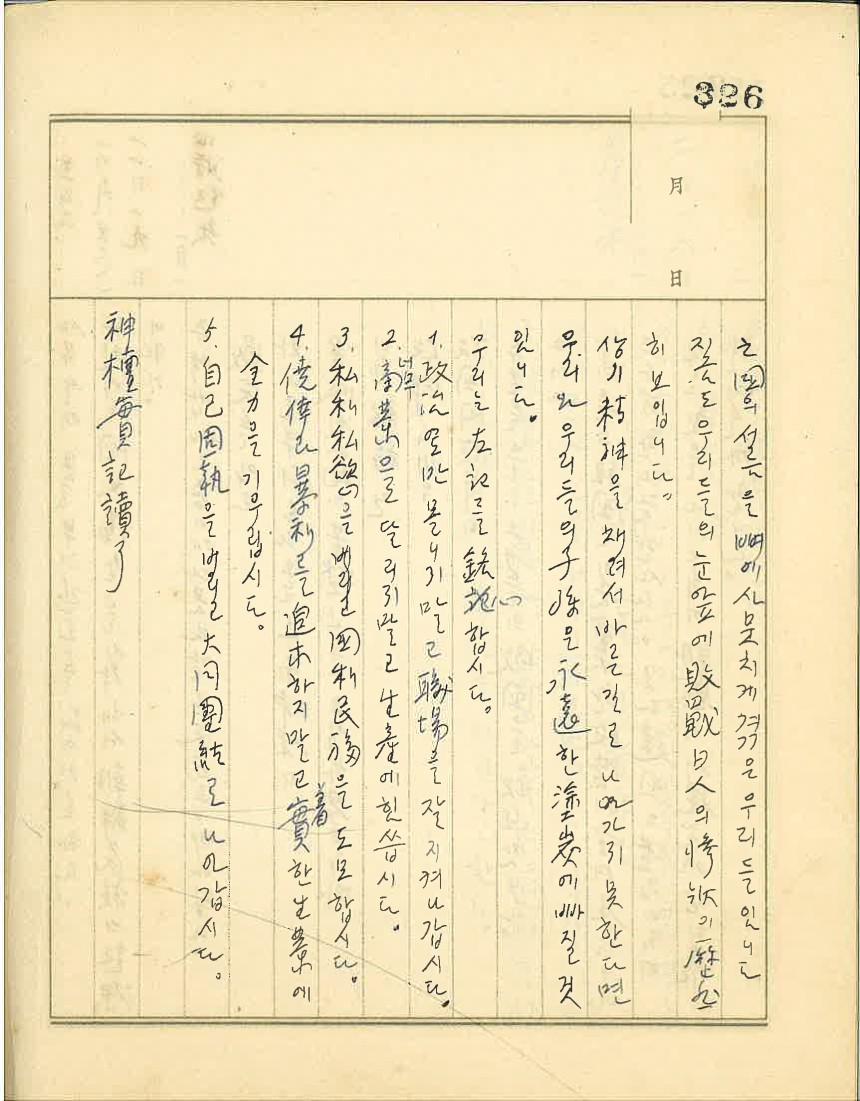 326
月
日
는 国의 설음을 뼈에 사뭇치게 격은 우리들임니다
지금도 우리들의 눈앞에 敗戰日人의 慘狀이 歷然
히 보입니다。
상기 精神을 채려서 바른길로 나어가지 못한다면
우리와 우리들의 子孫은 永遠한 塗炭에 빠질 것
임니다。
우리는 左記를 銘誌합시다。
1. 政治열만 몰니지말고 職場을 잘 지켜나갑시다。
2. 너무 商業으로 달리지말고 生產에 힘씁시다。
3. 私利私慾을 버리고 國利民福을 도모합시다。
4. 僥倖과 暴利를 追求하지말고 着實한 生業에
全力을 기우립시다。
5. 自己固執을 버리고 大同團結로 나아갑시다。
神檀實記讀了